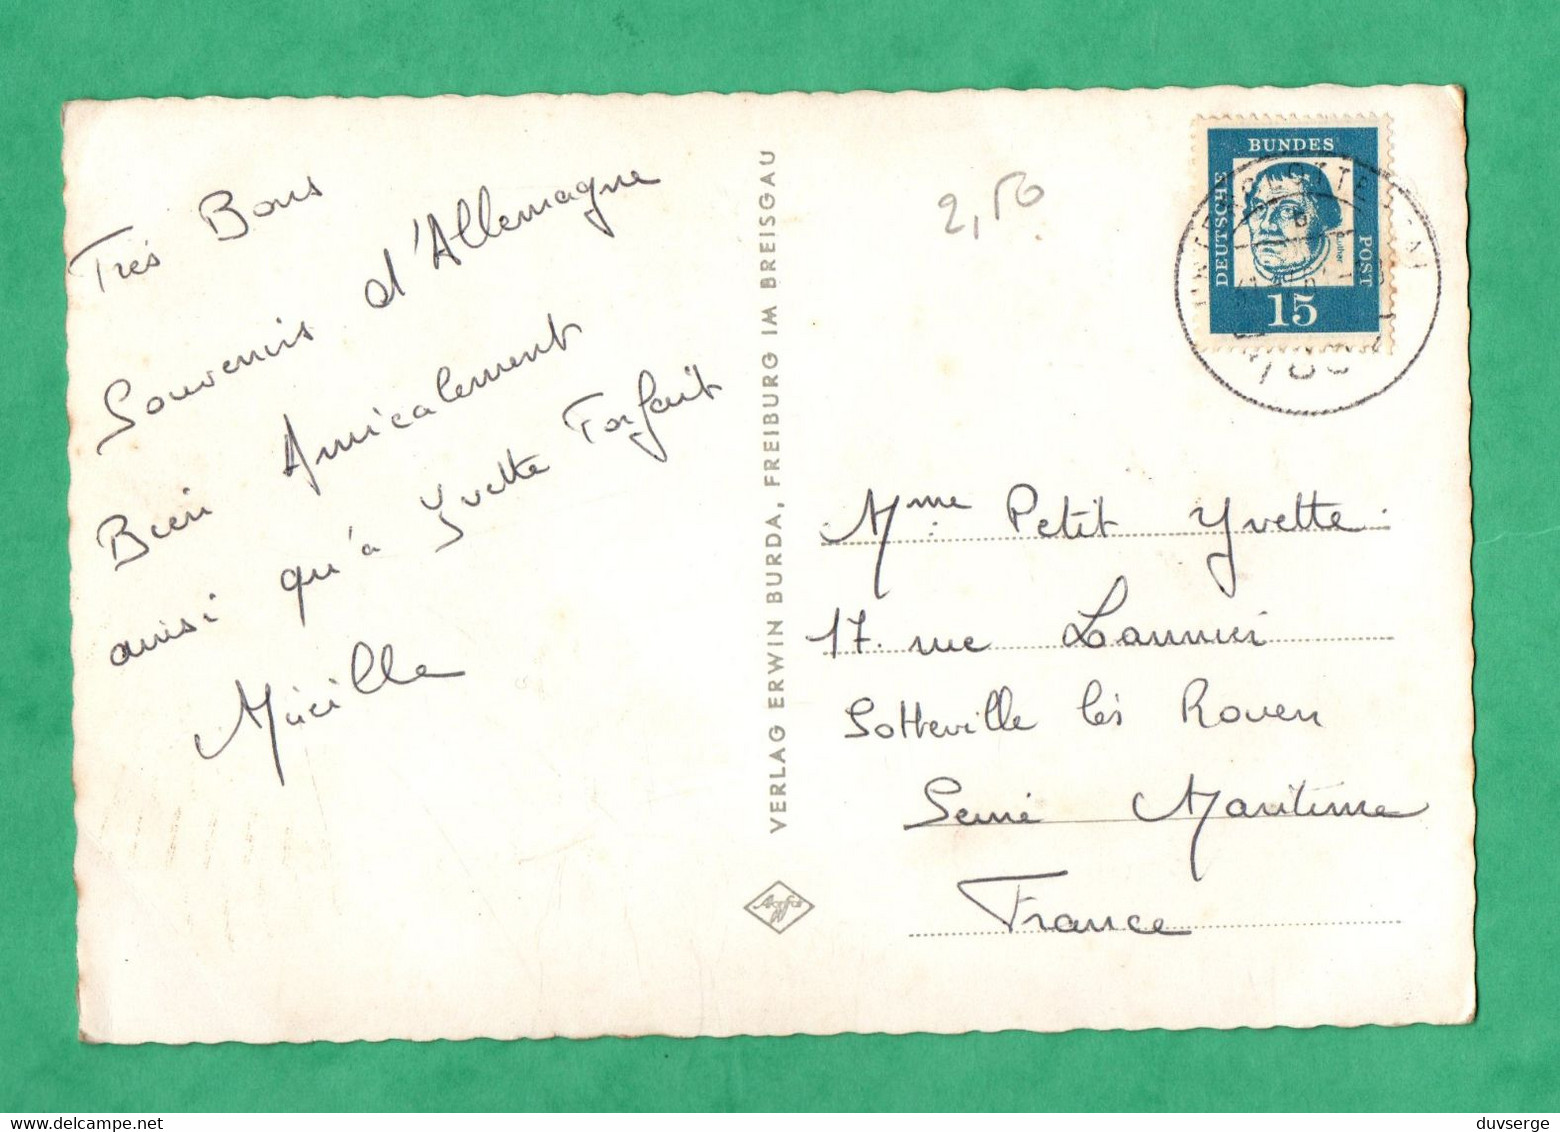 Très Bons
Souvenirs d'Allemagne
Bien Amicalement
ainsi qu'à Yvette Forfait
Mireille
VERLAG ERWIN BURDA, FREIBURG IM BREISGAU
Agfa
2,50
DEUTSCHE BUNDES POST
Luther
15
Mme Petit Yvette
17. rue
Sotteville lès Rouen
Seine Maritime
France
www.delcampe.net
duvserge